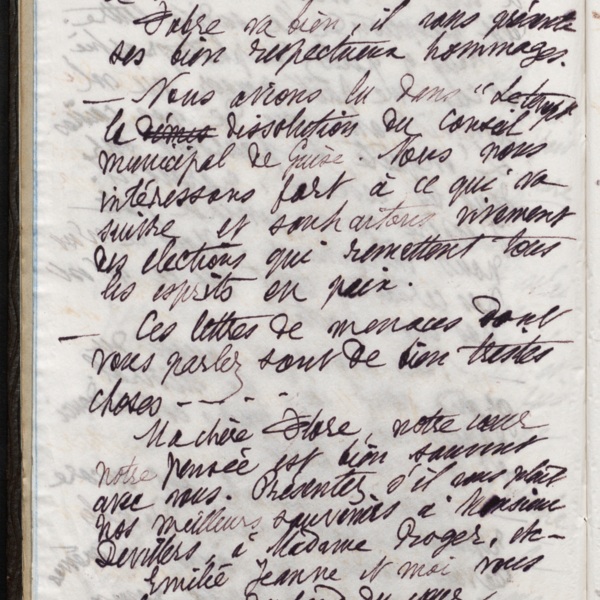 Fabre va bien, il vous présente
ses bien respectueux hommages.
— Nous avions lu dans "Le temps"
la dissolution du Conseil
municipal de Guise. Nous nous
intéressons fort à ce qui va
suivre et souhaitons vivement
des élections qui remettent tous
les esprits en paix.
— Ces lettres de menaces dont
vous parlez sont de bien tristes
choses - - - -
Ma chère Flore, notre cœur
notre pensée est bien souvent
avec vous. Présentez, s'il vous plaît
nos meilleurs souvenirs à Monsieur
Devillers, à Madame Roger, etc-
Emilie Jeanne et moi vous
du cœur